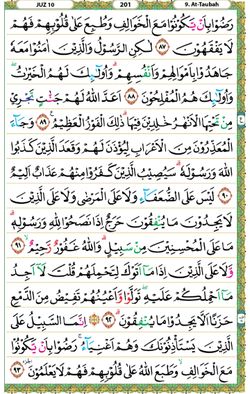 JUZ 10 201 9. At-Taubah
رَضُوا بِأَنْ يَكُونُوا مَعَ الْخَوَالِفِ وَطُبِعَ عَلَىٰ قُلُوبِهِمْ فَهُمْ
لَا يَفْقَهُونَ ٨٧ لَٰكِنِ الرَّسُولُ وَالَّذِينَ آمَنُوا مَعَهُ
جَاهَدُوا بِأَمْوَالِهِمْ وَأَنْفُسِهِمْ وَأُولَٰئِكَ لَهُمُ الْخَيْرَاتُ
وَأُولَٰئِكَ هُمُ الْمُفْلِحُونَ ٨٨ أَعَدَّ اللَّهُ لَهُمْ جَنَّاتٍ تَجْرِي
مِنْ تَحْتِهَا الْأَنْهَارُ خَالِدِينَ فِيهَا ذَٰلِكَ الْفَوْزُ الْعَظِيمُ ٨٩ وَجَاءَ
الْمُعَذِّرُونَ مِنَ الْأَعْرَابِ لِيُؤْذَنَ لَهُمْ وَقَعَدَ الَّذِينَ كَذَبُوا
اللَّهَ وَرَسُولَهُ سَيُصِيبُ الَّذِينَ كَفَرُوا مِنْهُمْ عَذَابٌ أَلِيمٌ
٩٠ لَيْسَ عَلَى الضُّعَفَاءِ وَلَا عَلَى الْمَرْضَىٰ وَلَا عَلَى الَّذِينَ
لَا يَجِدُونَ مَا يُنْفِقُونَ حَرَجٌ إِذَا نَصَحُوا لِلَّهِ وَرَسُولِهِ
مَا عَلَى الْمُحْسِنِينَ مِنْ سَبِيلٍ وَاللَّهُ غَفُورٌ رَحِيمٌ ٩١
وَلَا عَلَى الَّذِينَ إِذَا مَا أَتَوْكَ لِتَحْمِلَهُمْ قُلْتَ لَا أَجِدُ
مَا أَحْمِلُكُمْ عَلَيْهِ تَوَلَّوْا وَأَعْيُنُهُمْ تَفِيضُ مِنَ الدَّمْعِ
حَزَنًا أَلَّا يَجِدُوا مَا يُنْفِقُونَ ٩٢ إِنَّمَا السَّبِيلُ عَلَى
الَّذِينَ يَسْتَأْذِنُونَكَ وَهُمْ أَغْنِيَاءُ رَضُوا بِأَنْ يَكُونُوا
مَعَ الْخَوَالِفِ وَطَبَعَ اللَّهُ عَلَىٰ قُلُوبِهِمْ فَهُمْ لَا يَعْلَمُونَ ٩٣